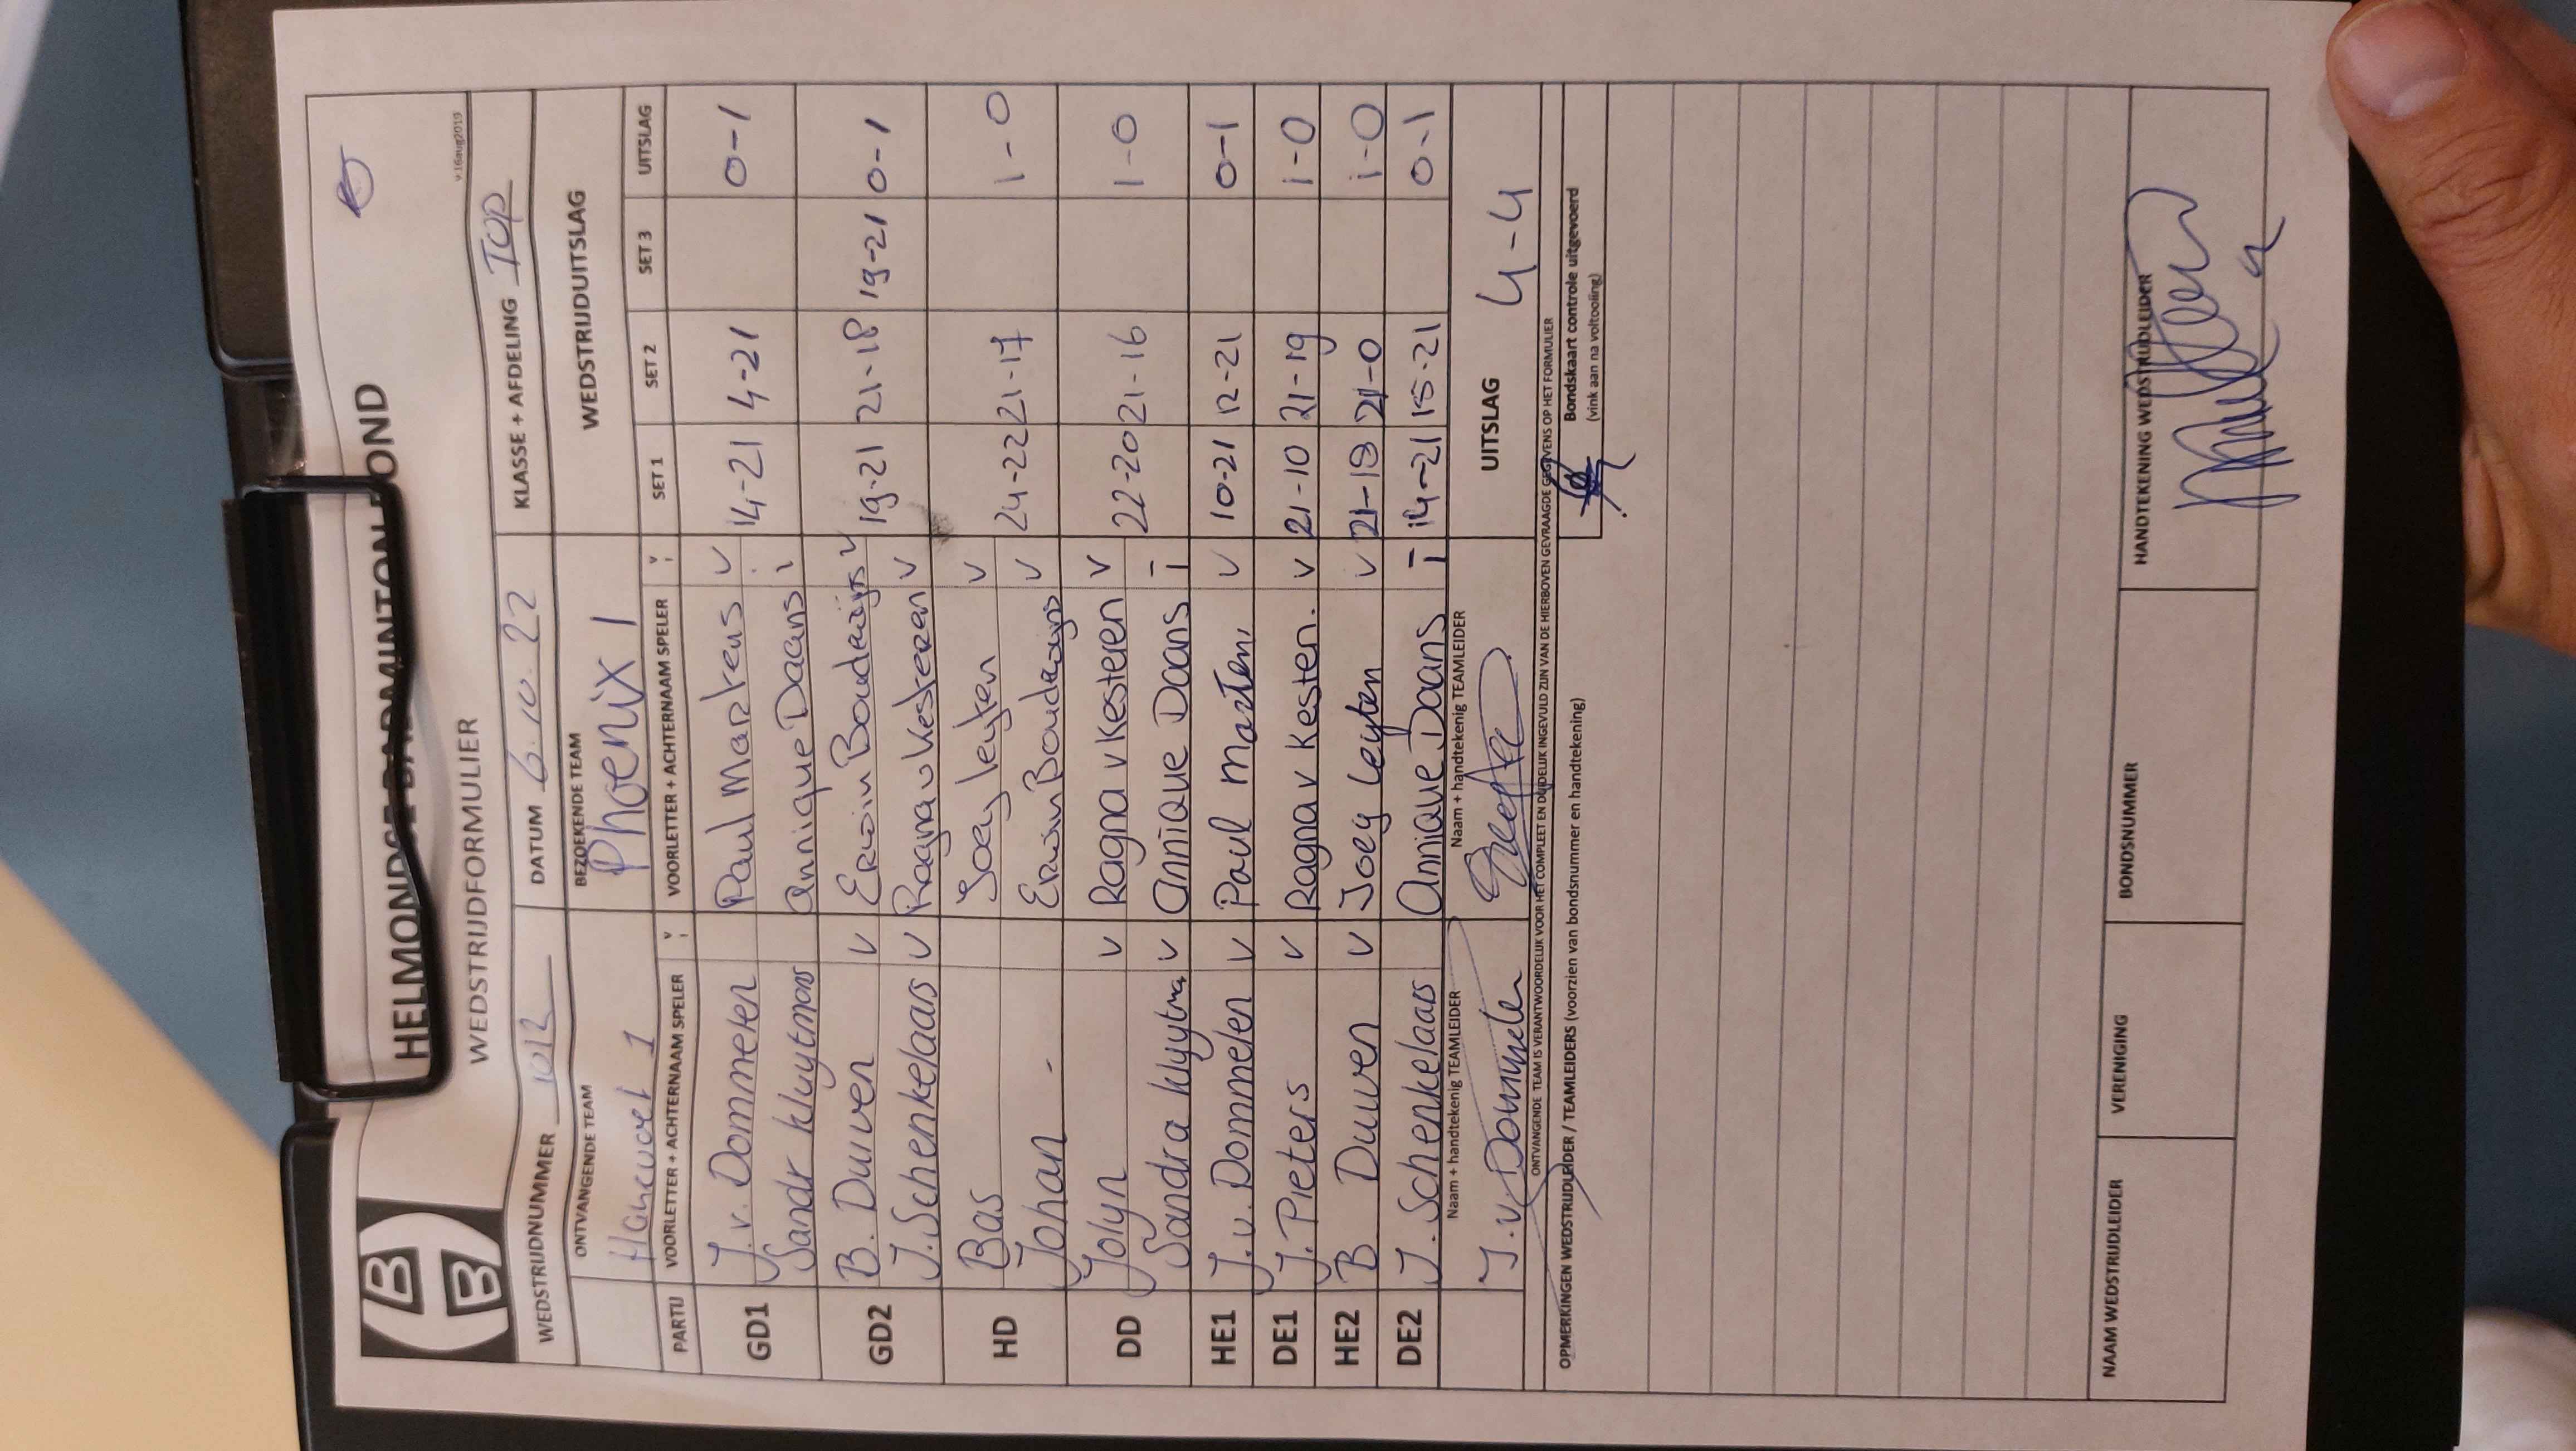 HELMONDSE BADMINTON BOND
WEDSTRIJDFORMULIER
v.16aug2019
WEDSTRIJDNUMMER 1012 DATUM 6.10.22 KLASSE + AFDELING TOP
ONTVANGENDE TEAM BEZOEKENDE TEAM WEDSTRIJDUITSLAG
1 Phoenix 1
PARTIJ VOORLETTER + ACHTERNAAM SPELER V i VOORLETTER + ACHTERNAAM SPELER V i SET 1 SET 2 SET 3 UITSLAG
GD1 J. v. Dommelen Paul Martens v 14-21 4-21 0-1
Sandr Kluytmans Annique Daans i
GD2 B. Duiven v Erwin Boudewijns v 19-21 21-18 19-21 0-1
J. Schenkelaars v Ragna v Kesteren v
HD Bas Joey Leyten v 24-22 21-17 1-0
Johan - Erwin Boudewijns v
DD Jolyn v Ragna v Kesteren v 22-20 21-16 1-0
Sandra Kluytma v Annique Daans i
HE1 J. v. Dommelen v Paul Marten, v 10-21 12-21 0-1
DE1 J. Pieters v Ragna v Kesten. v 21-10 21-19 1-0
HE2 B Duiven v Joey Leyten v 21-18 21-0 1-0
DE2 J. Schenkelaars Annique Daans i 14-21 15-21 0-1
Naam + handtekenig TEAMLEIDER Naam + handtekenig TEAMLEIDER UITSLAG 4-4
J. v. Dommelen
ONTVANGENDE TEAM IS VERANTWOORDELIJK VOOR HET COMPLEET EN DUIDELIJK INGEVULD ZIJN VAN DE HIERBOVEN GEVRAAGDE GEGEVENS OP HET FORMULIER
OPMERKINGEN WEDSTRIJDLEIDER / TEAMLEIDERS (voorzien van bondsnummer en handtekening) Bondskaart controle uitgevoerd
(vink aan na voltooiing)
NAAM WEDSTRIJDLEIDER VERENIGING BONDSNUMMER HANDTEKENING WEDSTRIJDLEIDER